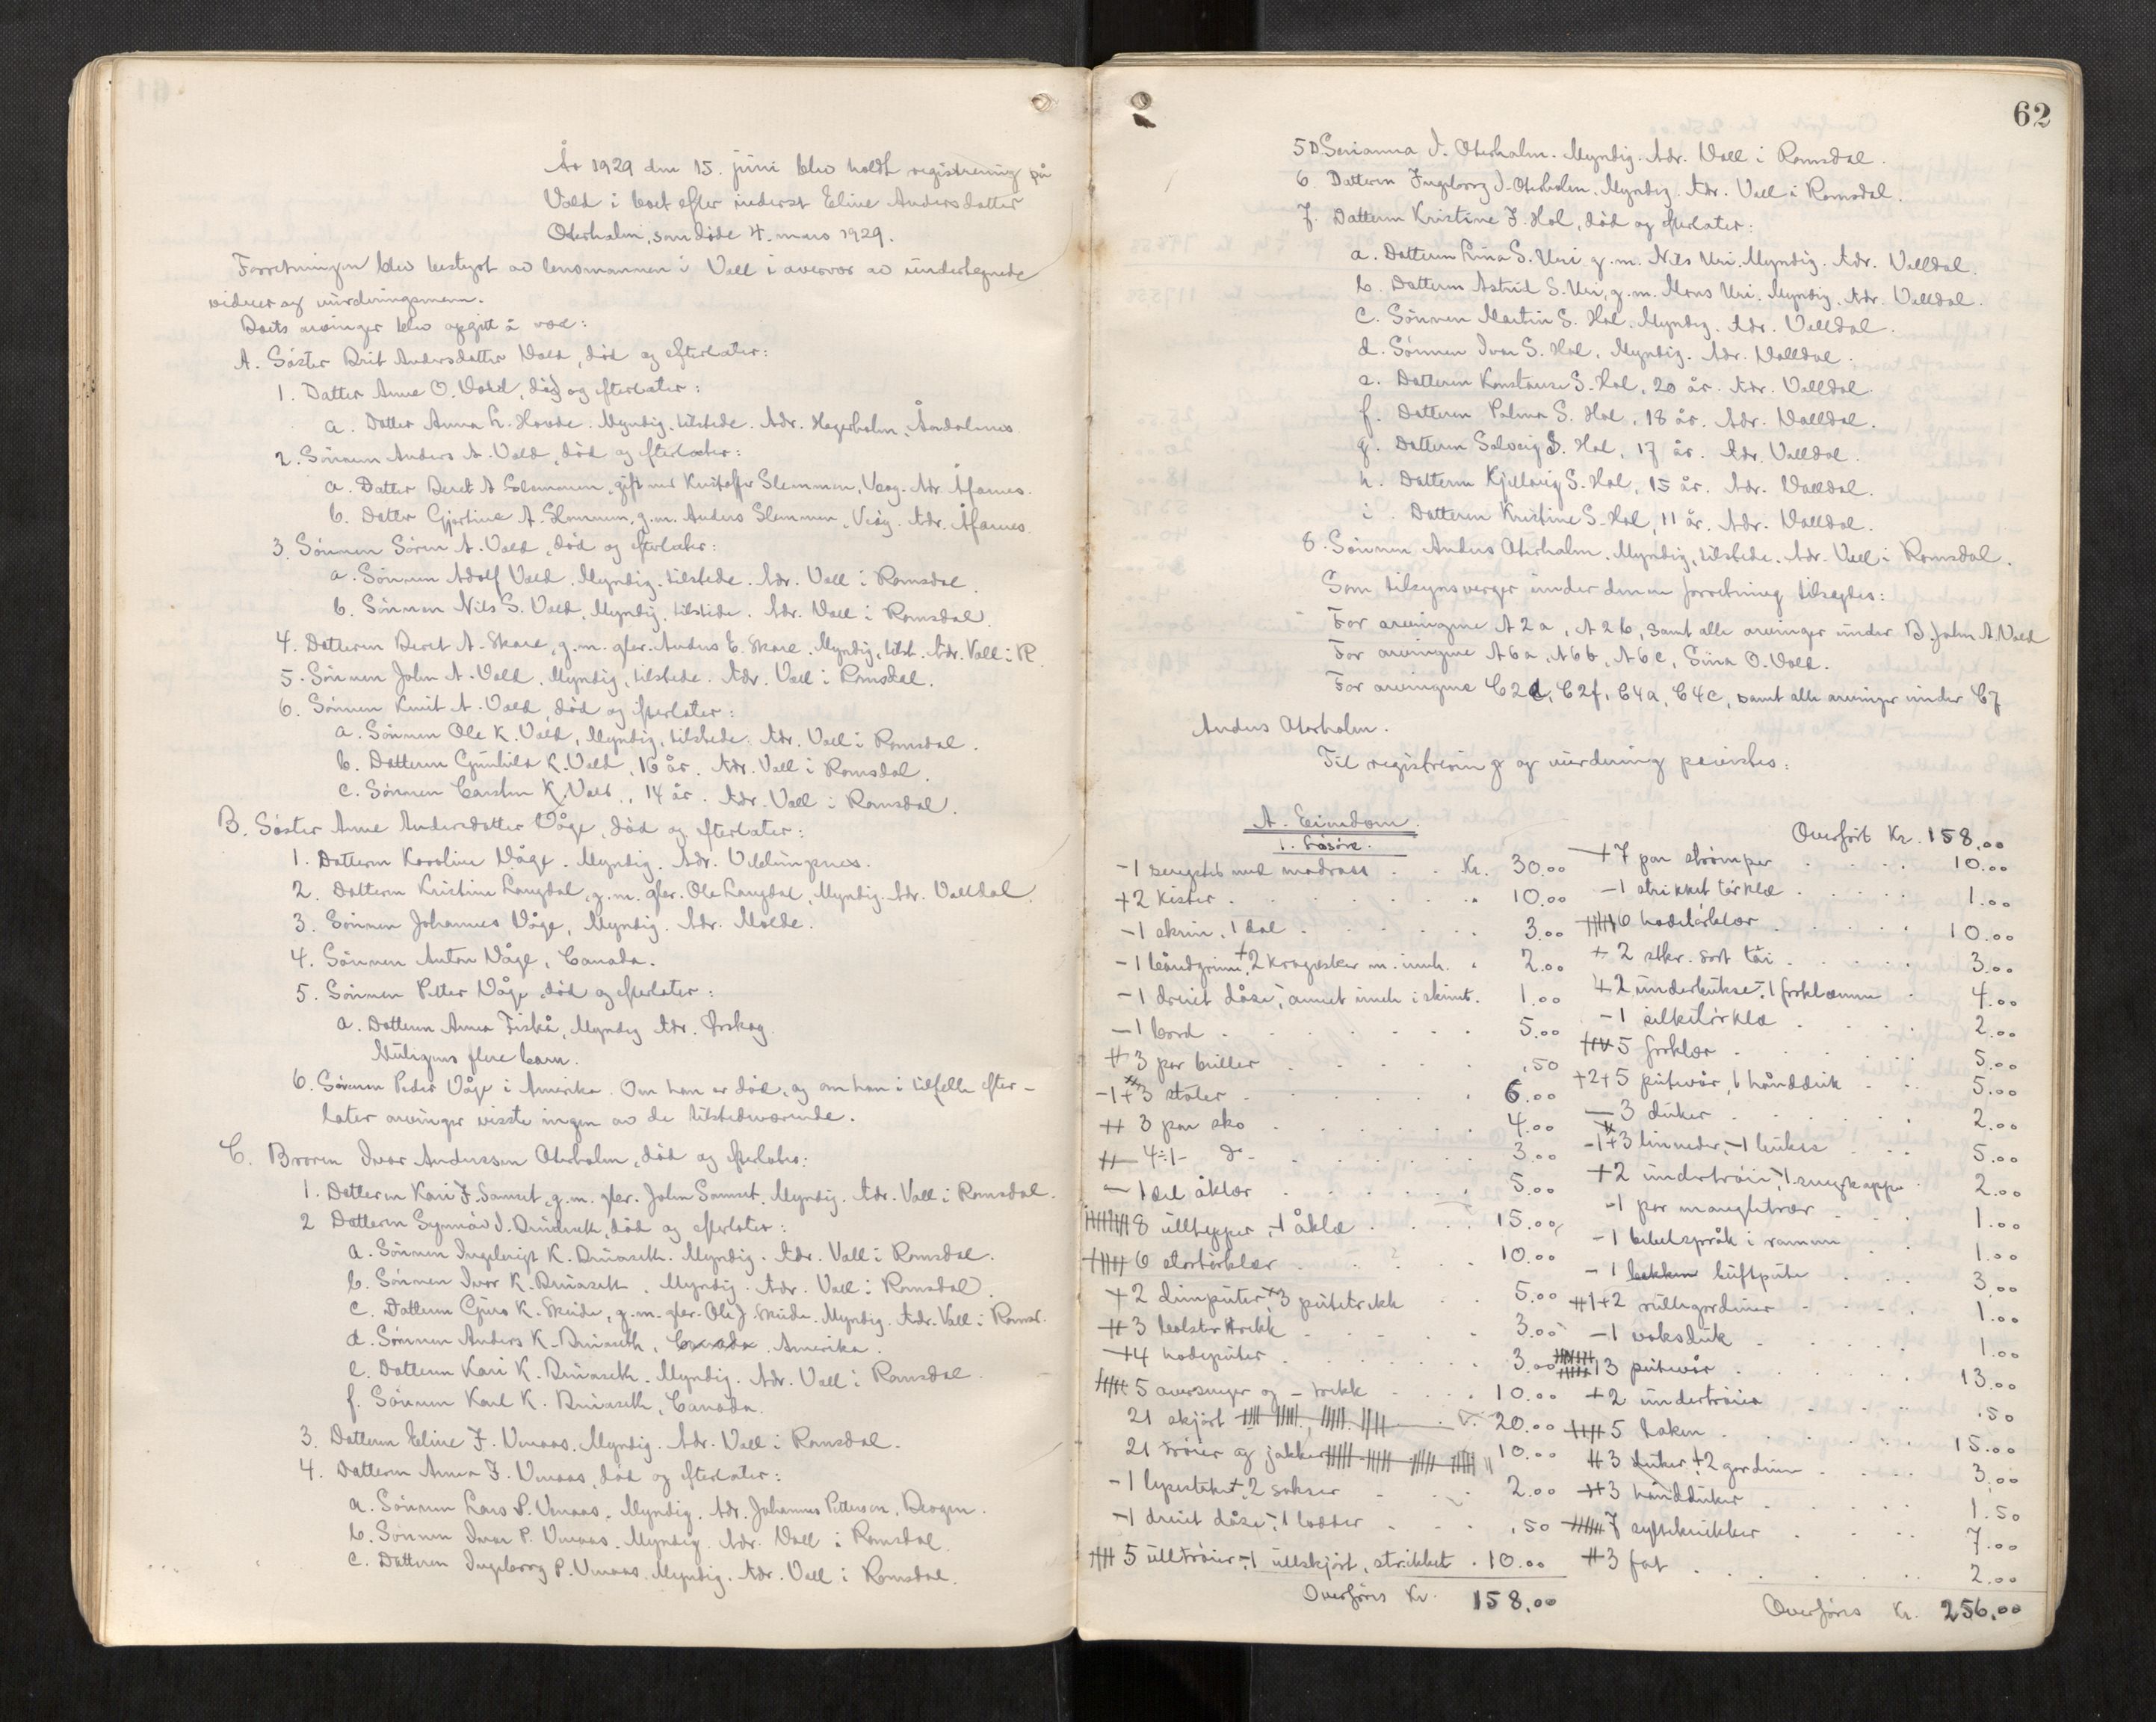 År 1929 den 15. juni blev holdt registrering på
Vold i boet efter inderst Eline Andersdatter
Oterholm, som døde 4. mars 1929.
Forretningen blev bestyrt av lensmannen i Voll i overvær av undertegnede
vidner og vurderingsmenn.
Boets arvinger blev opgitt å være:
A. Søster Brit Andersdatter Vold, død og efterlater:
1. Datter Anne O. Vold, død og efterlater:
a. Datter Anna L. Hovde. Myndig, tilstede. Adr. Hagerholm, Åndalsnes.
2. Sønnen Anders A. Vold, død og efterlater:
a. Datter Beret A. Slemmen, gift med Kristoffer Slemmen, Veøy. Adr. Åfarnes.
b. Datter Gjertine A. Slemmen, g.m. Anders Slemmen, Veøy. Adr. Åfarnes.
3. Sønnen Søren A. Vold, død og efterlater:
a. Sønnen Adolf Vold. Myndig. tilstede. Adr. Voll i Romsdal.
b. Sønnen Nils S. Vold, Myndig, tilstede. Adr. Voll i Romsdal.
4. Datteren Beret A. Skare, g.m. gbr. Anders E. Skare. Myndig, tilst. Adr. Voll i R.
5. Sønnen John A. Vold. Myndig, tilstede. Adr. Voll i Romsdal.
6. Sønnen Knut A. Vold, død og efterlater:
a. Sønnen Ole K. Vold, Myndig, tilstede. Adr. Voll i Romsdal.
b. Datteren Gunhild K. Vold, 16 år. Adr. Voll i Romsdal.
c. Sønnen Carsten K. Vold, 14 år. Adr. Voll i Romsdal.
B. Søster Anne Andersdatter Våge, død og efterlater:
1. Datteren Karoline Våge. Myndig. Adr. Veblungsnes.
2. Datteren Kristine Langdal, g.m. gbr. Ole Langdal, Myndig. Adr. Valldal.
3. Sønnen Johannes Våge, Myndig. Adr. Molde.
4. Sønnen Anton Våge, Canada.
5. Sønnen Petter Våge, død og efterlater:
a. Datteren Anna Fiskå, Myndig Adr. Ørskog.
Muligens flere barn.
6. Sønnen Peder Våge i Amerika. Om han er død, og om han i tilfelle efter-
later arvinger visste ingen av de tilstedeværende.
C. Broren Ivar Anderssen Oterholm, død og efterlater:
1. Datteren Kari I. Samset, g.m. gbr. John Samset. Myndig. Adr. Voll i Romsdal.
2 Datteren Synnøv I. Brudeseth, død og efterlater:
a. Sønnen Ingebrigt K. Bruaseth. Myndig. Adr. Voll i Romsdal.
b. Sønnen Ivar K. Bruaseth. Myndig. Adr. Voll i Romsdal.
c. Datteren Guro K. Skeide, g.m. gbr. Ole J. Skeide. Myndig. Adr. Voll i Romsd.
d. Sønnen Anders K. Bruaseth, Canada Amerika.
e. Datteren Kari K. Bruaseth. Myndig. Adr. Voll i Romsdal.
f. Sønnen Karl K. Bruaseth, Canada.
3. Datteren Eline I. Unaas. Myndig. Adr. Voll i Romsdal.
4. Datteren Anna I. Unaas, død og efterlater:
a. Sønnen Lars P. Unaas. Myndig. Adr. Johannes Petterson, Bergen.
b. Sønnen Ivar P. Unaas. Myndig. Adr. Voll i Romsdal.
c. Datteren Ingeborg P. Unaas. Myndig. Adr. Voll i Romsdal.
62
5 D. Serianna I. Oterholm. Myndig. Adr. Voll i Romsdal.
6. Datteren Ingeborg I. Oterholm, Myndig. Adr. Voll i Romsdal.
7. Datteren Kristine I. Hol, død og efterlater:
a. Datteren Lina S. Uri g.m. Nils Uri. Myndig. Adr. Valldal.
b. Datteren Astrid S. Uri, g.m. Mons Uri. Myndig. Adr. Valldal.
c. Sønnen Martin S. Hol. Myndig. Adr. Valldal.
d. Sønnen Ivar S. Hol. Myndig. Adr. Valldal.
e. Datteren Konstanse S. Hol, 20 år. Adr. Valldal.
f. Datteren Palma S. Hol, 18 år. Adr. Valldal.
g. Datteren Solveig S. Hol, 17 år. Adr. Valldal.
h. Datteren Kjellaug S. Hol, 15 år. Adr. Valldal.
i. Datteren Kristine S. Hol, 11 år. Adr. Valldal.
8. Sønnen Anders Oterholm. Myndig, tilstede. Adr. Voll i Romsdal.
Som tilsynsverger under denne forretning tilsagdes:
For arvingene A 2 a, A 2 b, samt alle arvinger under B. John A. Vold
For arvingene A 6 a, A 6 b, A 6 c, Sina O. Vold.
For arvingene C 2 d, C 2 f, C 4 a, C 4 c, samt alle arvinger under C 7
Anders Oterholm.
Til registrering og vurdering påvistes:
A. Eiendom.
1. Løsøre.
- 1 sengested med madrass . . Kr. 30.00
+ 2 kister . . . 10.00
- 1 skrin, 1 dal . . . 3.00
- 1 båndgrinn, + 2 kragesker m. innh. . 2.00
- 1 dreiet dåse, - annet innh i skrint. 1.00
- 1 bord . . . 5.00
3 par briller . . . .50
- 1 + 3 stoler . . . 6.00
3 par sko . . . 4.00
4 - 1 - do - . . . 3.00
- 1 del åklær . . . 5.00
8 ullhepper, - 1 åklæ . . . 15.00
6 stortørklær . . . 10.00
+ 2 dunputer, + 3 putetrekk . . 5.00
3 bolstertrekk . . . 3.00
+ 4 hodeputer . . . 3.00
5 oversenger og - trekk . . . 10.00
21 skjørt . . . 20.00
21 trøier og jakker 10.00
- 1 lysestake, + 2 sakser . . . 2.00
- 1 dreiet dåse, - 1 lodder . . . .50
5 ulltrøier, - 1 ullskjørt, strikket . 10.00
Overføres Kr. 158.00
Overført Kr. 158.00
+ 7 par strømper . . . 10.00
- 1 strikket tørklæ . . . 1.00
6 hodetørklær . . . 10.00
+ 2 stkr. sort tøi . . . 3.00
+ 2 underbukse, - 1 forklæemne . 4.00
- 1 silketørklæ . . . 2.00
5 forklær . . . 5.00
+ 2 + 5 putevår, 1 håndduk . . 5.00
3 duker . . . 2.00
- 1 + 3 linneder, - 1 bukse . . 5.00
+ 2 undertrøier, - 1 regnkappe . 2.00
- 1 par mangletrær . . . 1.00
- 1 bibelspråk i ramme . . . 1.00
- 1 bekken luftpute . . . 3.00
1 + 2 rullegardiner . . . 1.00
- 1 voksduk . . . 1.00
13 putevår . . . 13.00
+ 2 undertrøier . . . .50
5 laken . . . 15.00
3 duker, + 2 gardiner . . . 3.00
3 håndduker . . . 1.50
7 sylteknikker . . . 7.00
3 fat . . . 2.00
Overføres Kr. 256.00